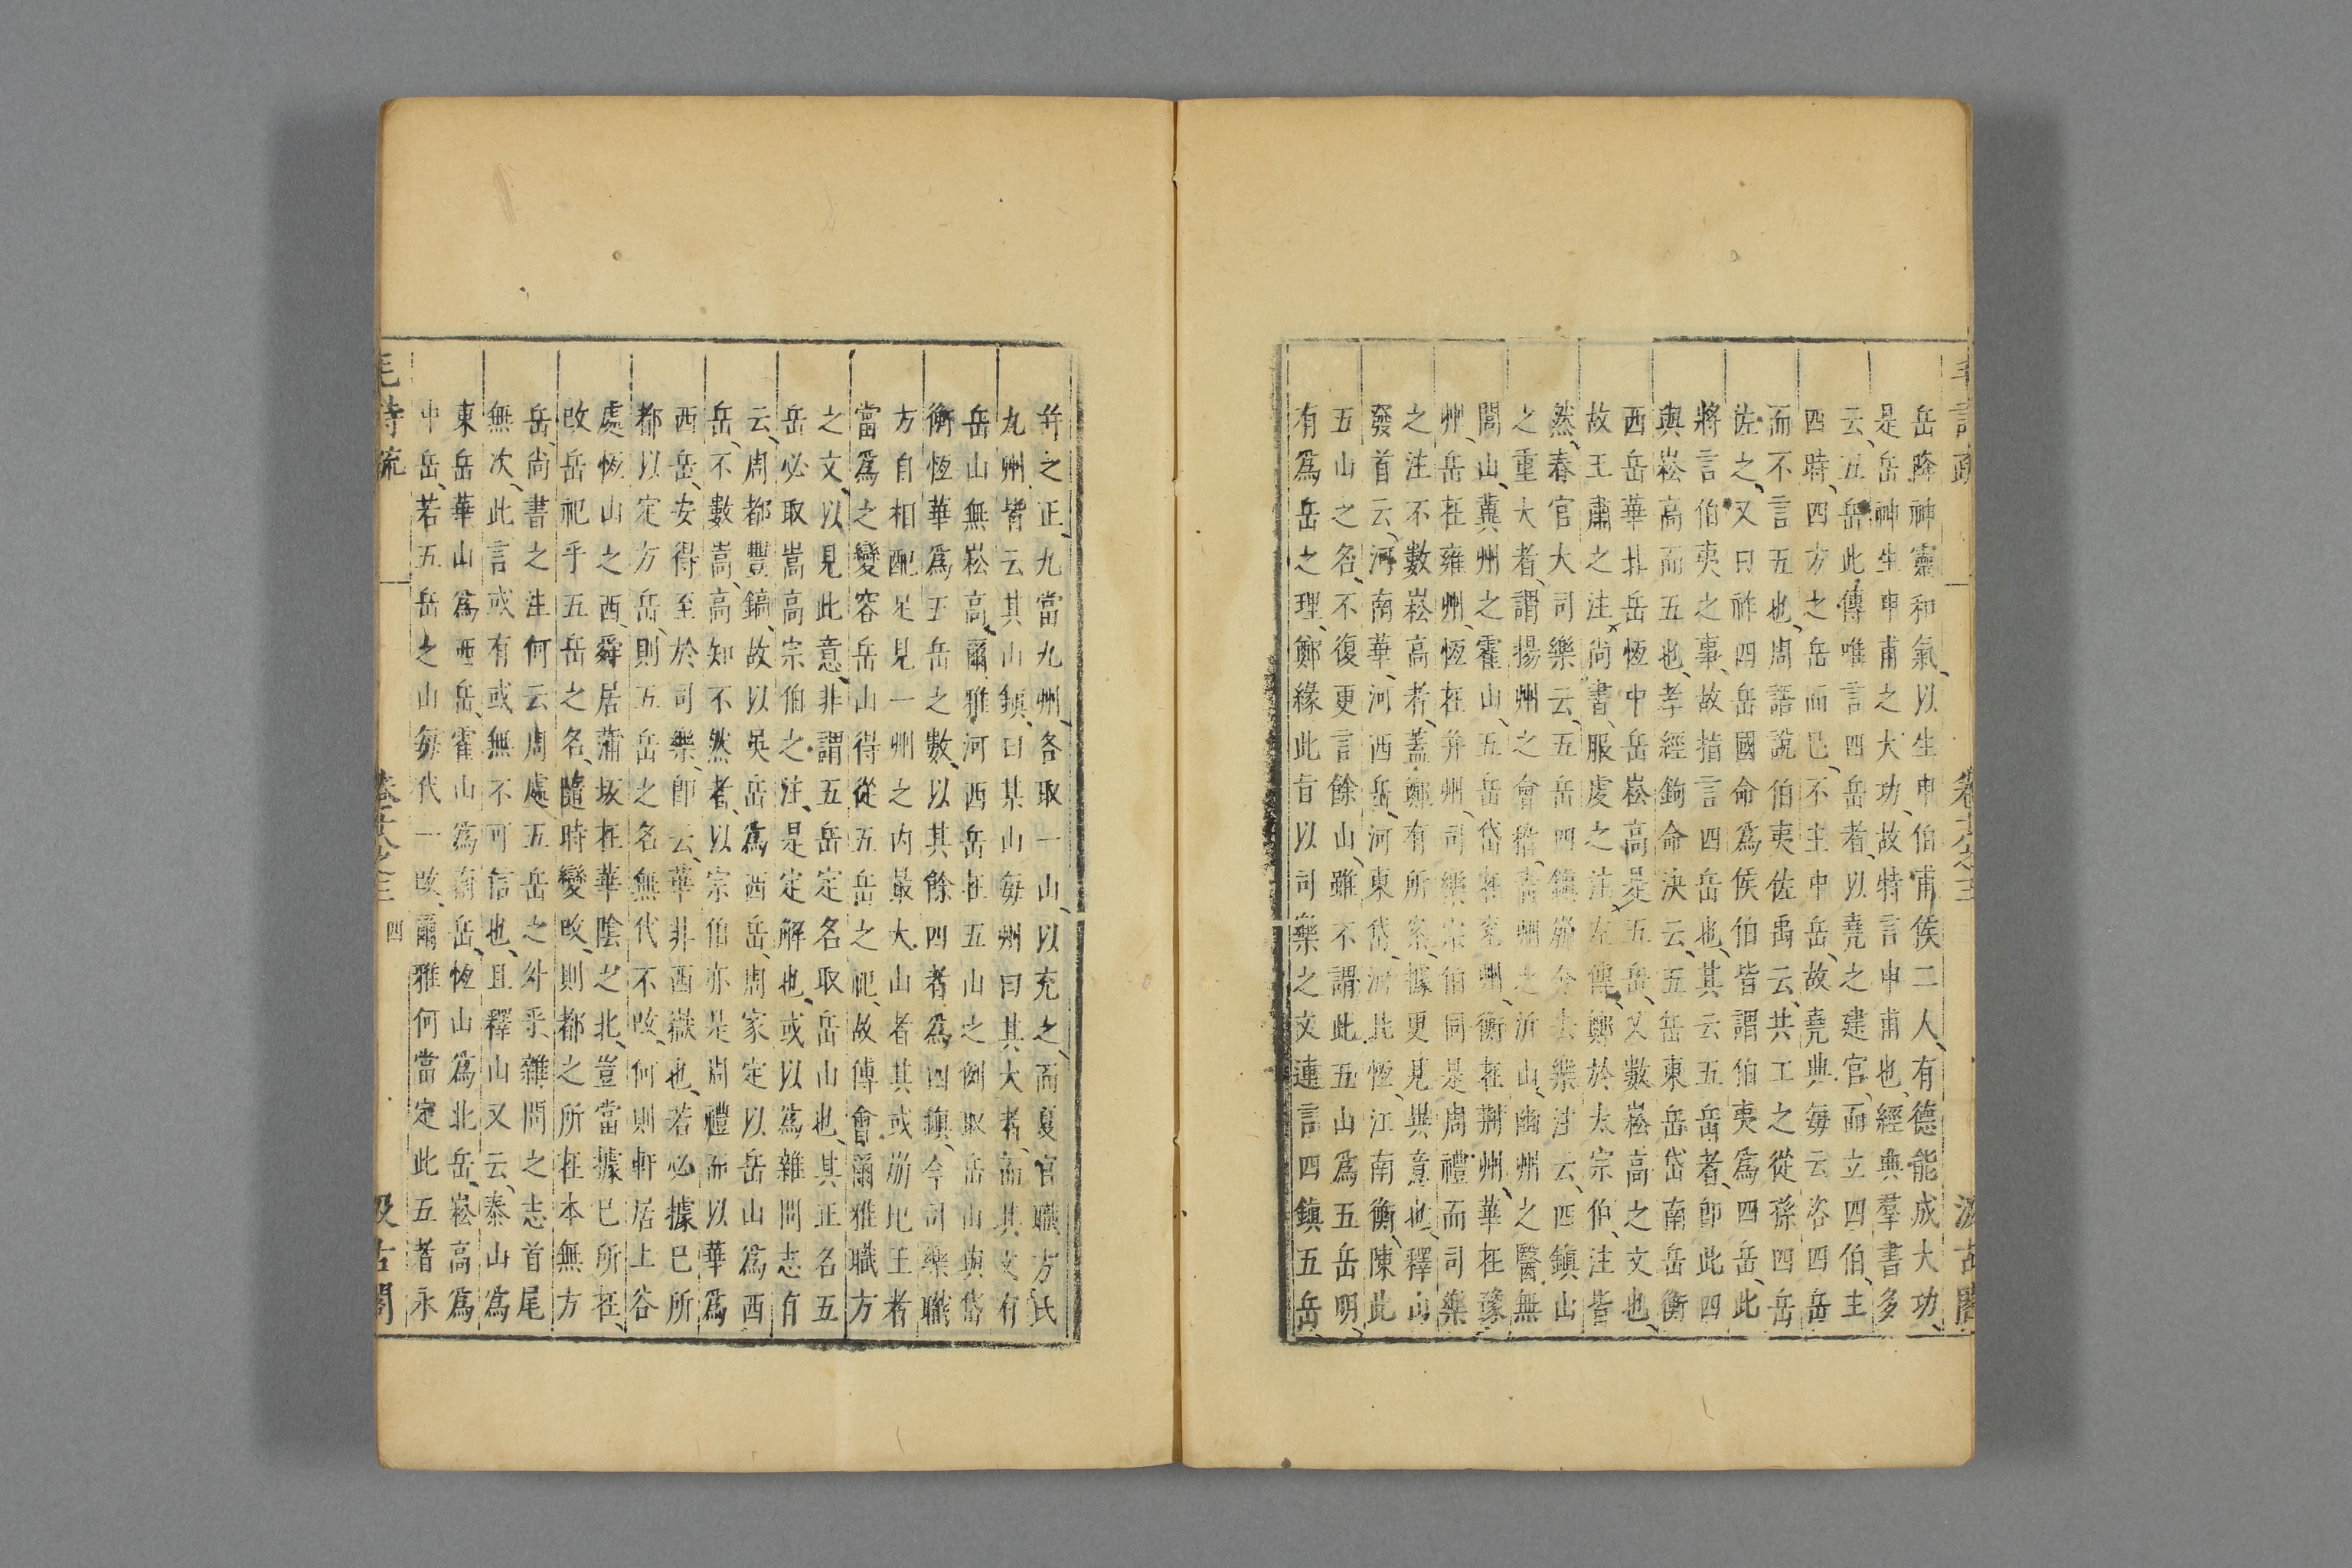 岳降神靈和氣以生申伯甫侯二人有德能成大功
是岳神生申甫之大功故特言申甫也經典羣書多
云五岳此傳唯言四岳者以堯之建官而立四伯主
四時四方之岳而已不主中岳故堯典每云咨四岳
而不言五也周語說伯夷佐禹云共工之從孫四岳
佐之又曰祚四岳國命爲侯伯皆謂伯夷爲四岳此
將言伯夷之事故指言四岳也其云五岳者卽此四
與崧高而五也孝經鉤命決云五岳東岳岱南岳衡
西岳華北岳恆中岳崧高是五岳又數崧高之文也
故王肅之注尚書服虔之注左傳鄭於大宗伯注皆
然春官大司樂云五岳四鎮崩令去樂注云四鎮山
之重大者謂揚州之會稽青州之沂山幽州之醫無
閭山冀州之霍山五岳岱在兖州衡在荆州華在豫
州岳在雍州恆在并州司樂宗伯同是周禮而司樂
之注不數崧高者蓋鄭有所案據更見異意也釋山
發首云河南華河西岳河東岱河北恆江南衡陳此
五山之名不復更言餘山雖不謂此五山爲五岳明
有爲岳之理鄭緣此旨以司樂之文連言四鎮五岳
并之正九當九州各取一山以充之而夏官職方氏
九州皆云其山鎮曰某山每州曰其大者而其文有
岳山無崧高爾雅河西岳在五山之例取岳山與岱
衡恆華爲五岳之數以其餘四者爲四鎮今司樂職
方自相配足見一州之內最大山者其或崩圯王者
當爲之變容岳山得從五岳之祀故傳會爾雅職方
之文以見此意非謂五岳定名取岳山也其正名五
岳必取嵩高宗伯之注是定解也或以爲雜問志有
云周都豐鎬故以吳岳爲西岳周家定以岳山爲西
岳不數嵩高知不然者以宗伯亦是周禮而以華爲
西岳安得至於司樂卽云華非西嶽也若必據巳所
都以定方岳則五岳之名無代不改何則軒居上谷
處恆山之西舜居蒲坂在華陰之北豈當據巳所在
改岳祀乎五岳之名隨時變改則都之所在本無方
岳尚書之注何云周處五岳之外乎雜問之志首尾
無次此言或有或無不可信也且釋山又云泰山爲
東岳華山爲西岳霍山爲南岳恆山爲北岳崧高爲
中岳若五岳之山每代一改爾雅何當定此五者永
毛詩疏 卷十八之三 四 汲古閣